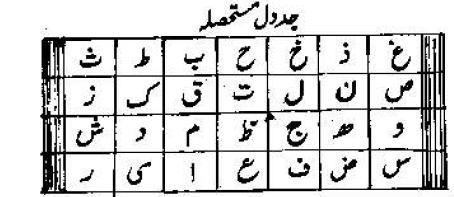 جدول مستحصلہ
غ ذ خ ح ب ط ث
ص ن ل ت ق ک ز
و ھ ج ظ م د ش
س ض ف ع ا ی ر